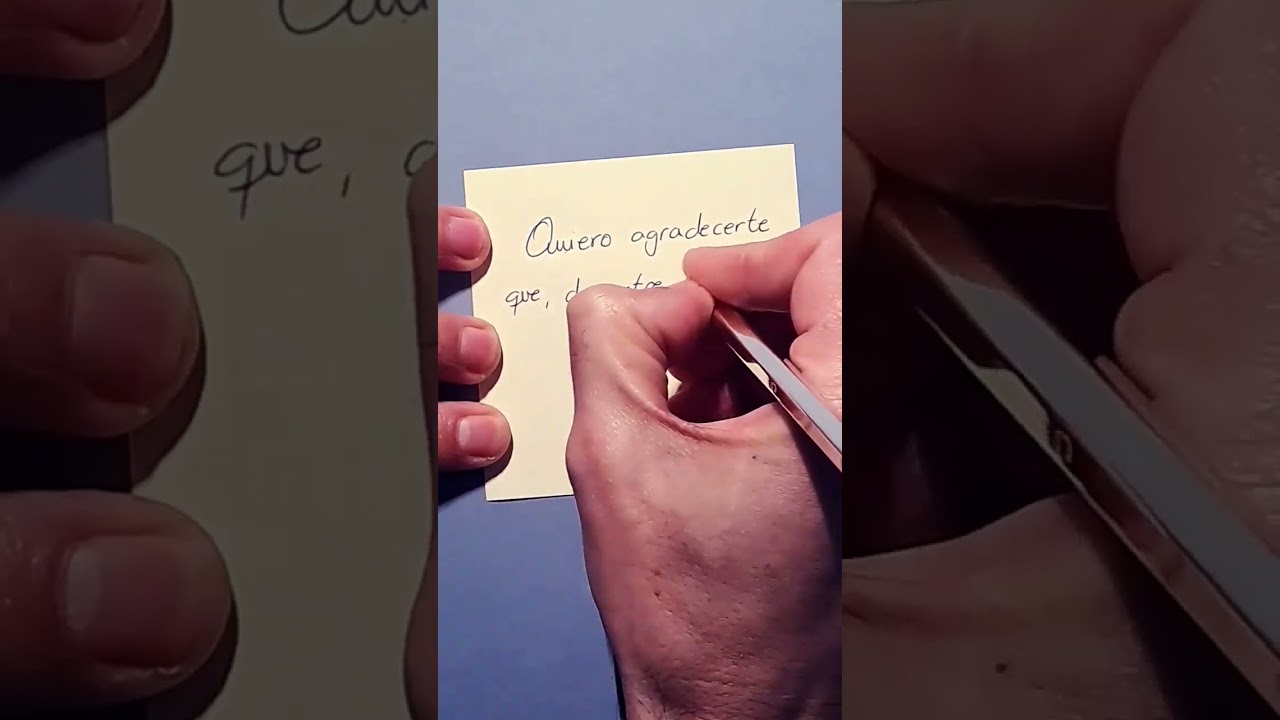 Quiero agradecerte
que,